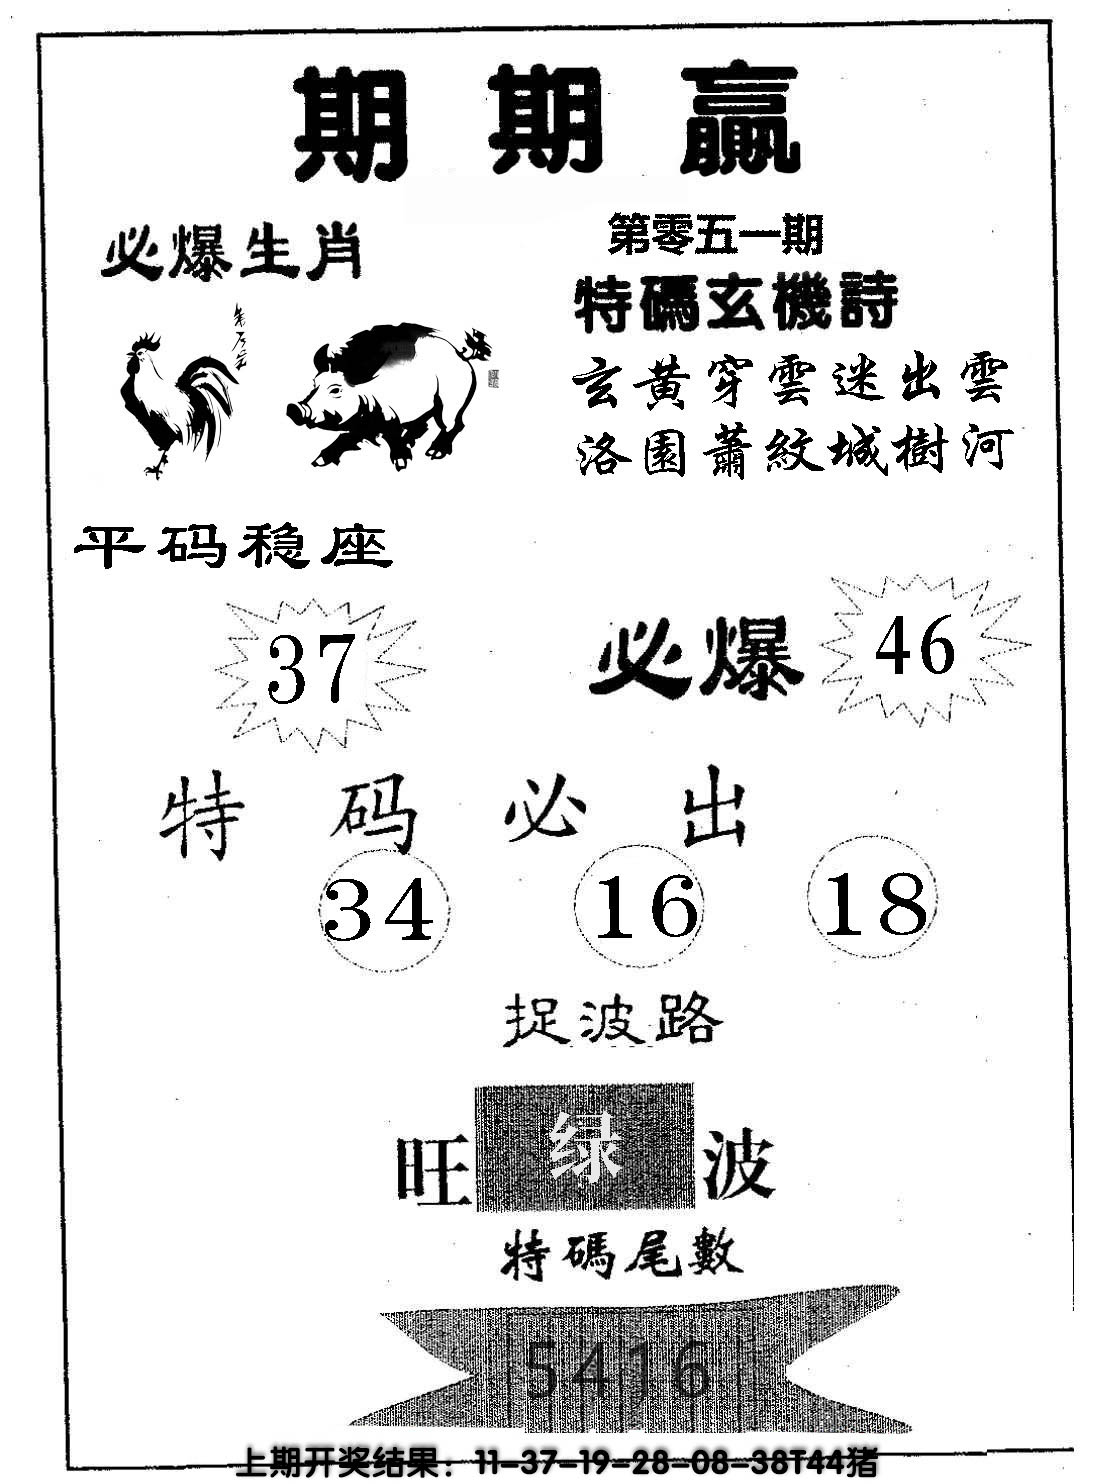 期期赢
必爆生肖
第零五一期
特碼玄機詩
玄黄穿雲迷出雲
洛園蕭紋城樹河
平码稳座
37
必爆 46
特码必出
34 16 18
捉波路
旺 绿 波
特碼尾數
5416
上期开奖结果：11-37-19-28-08-38T44猪